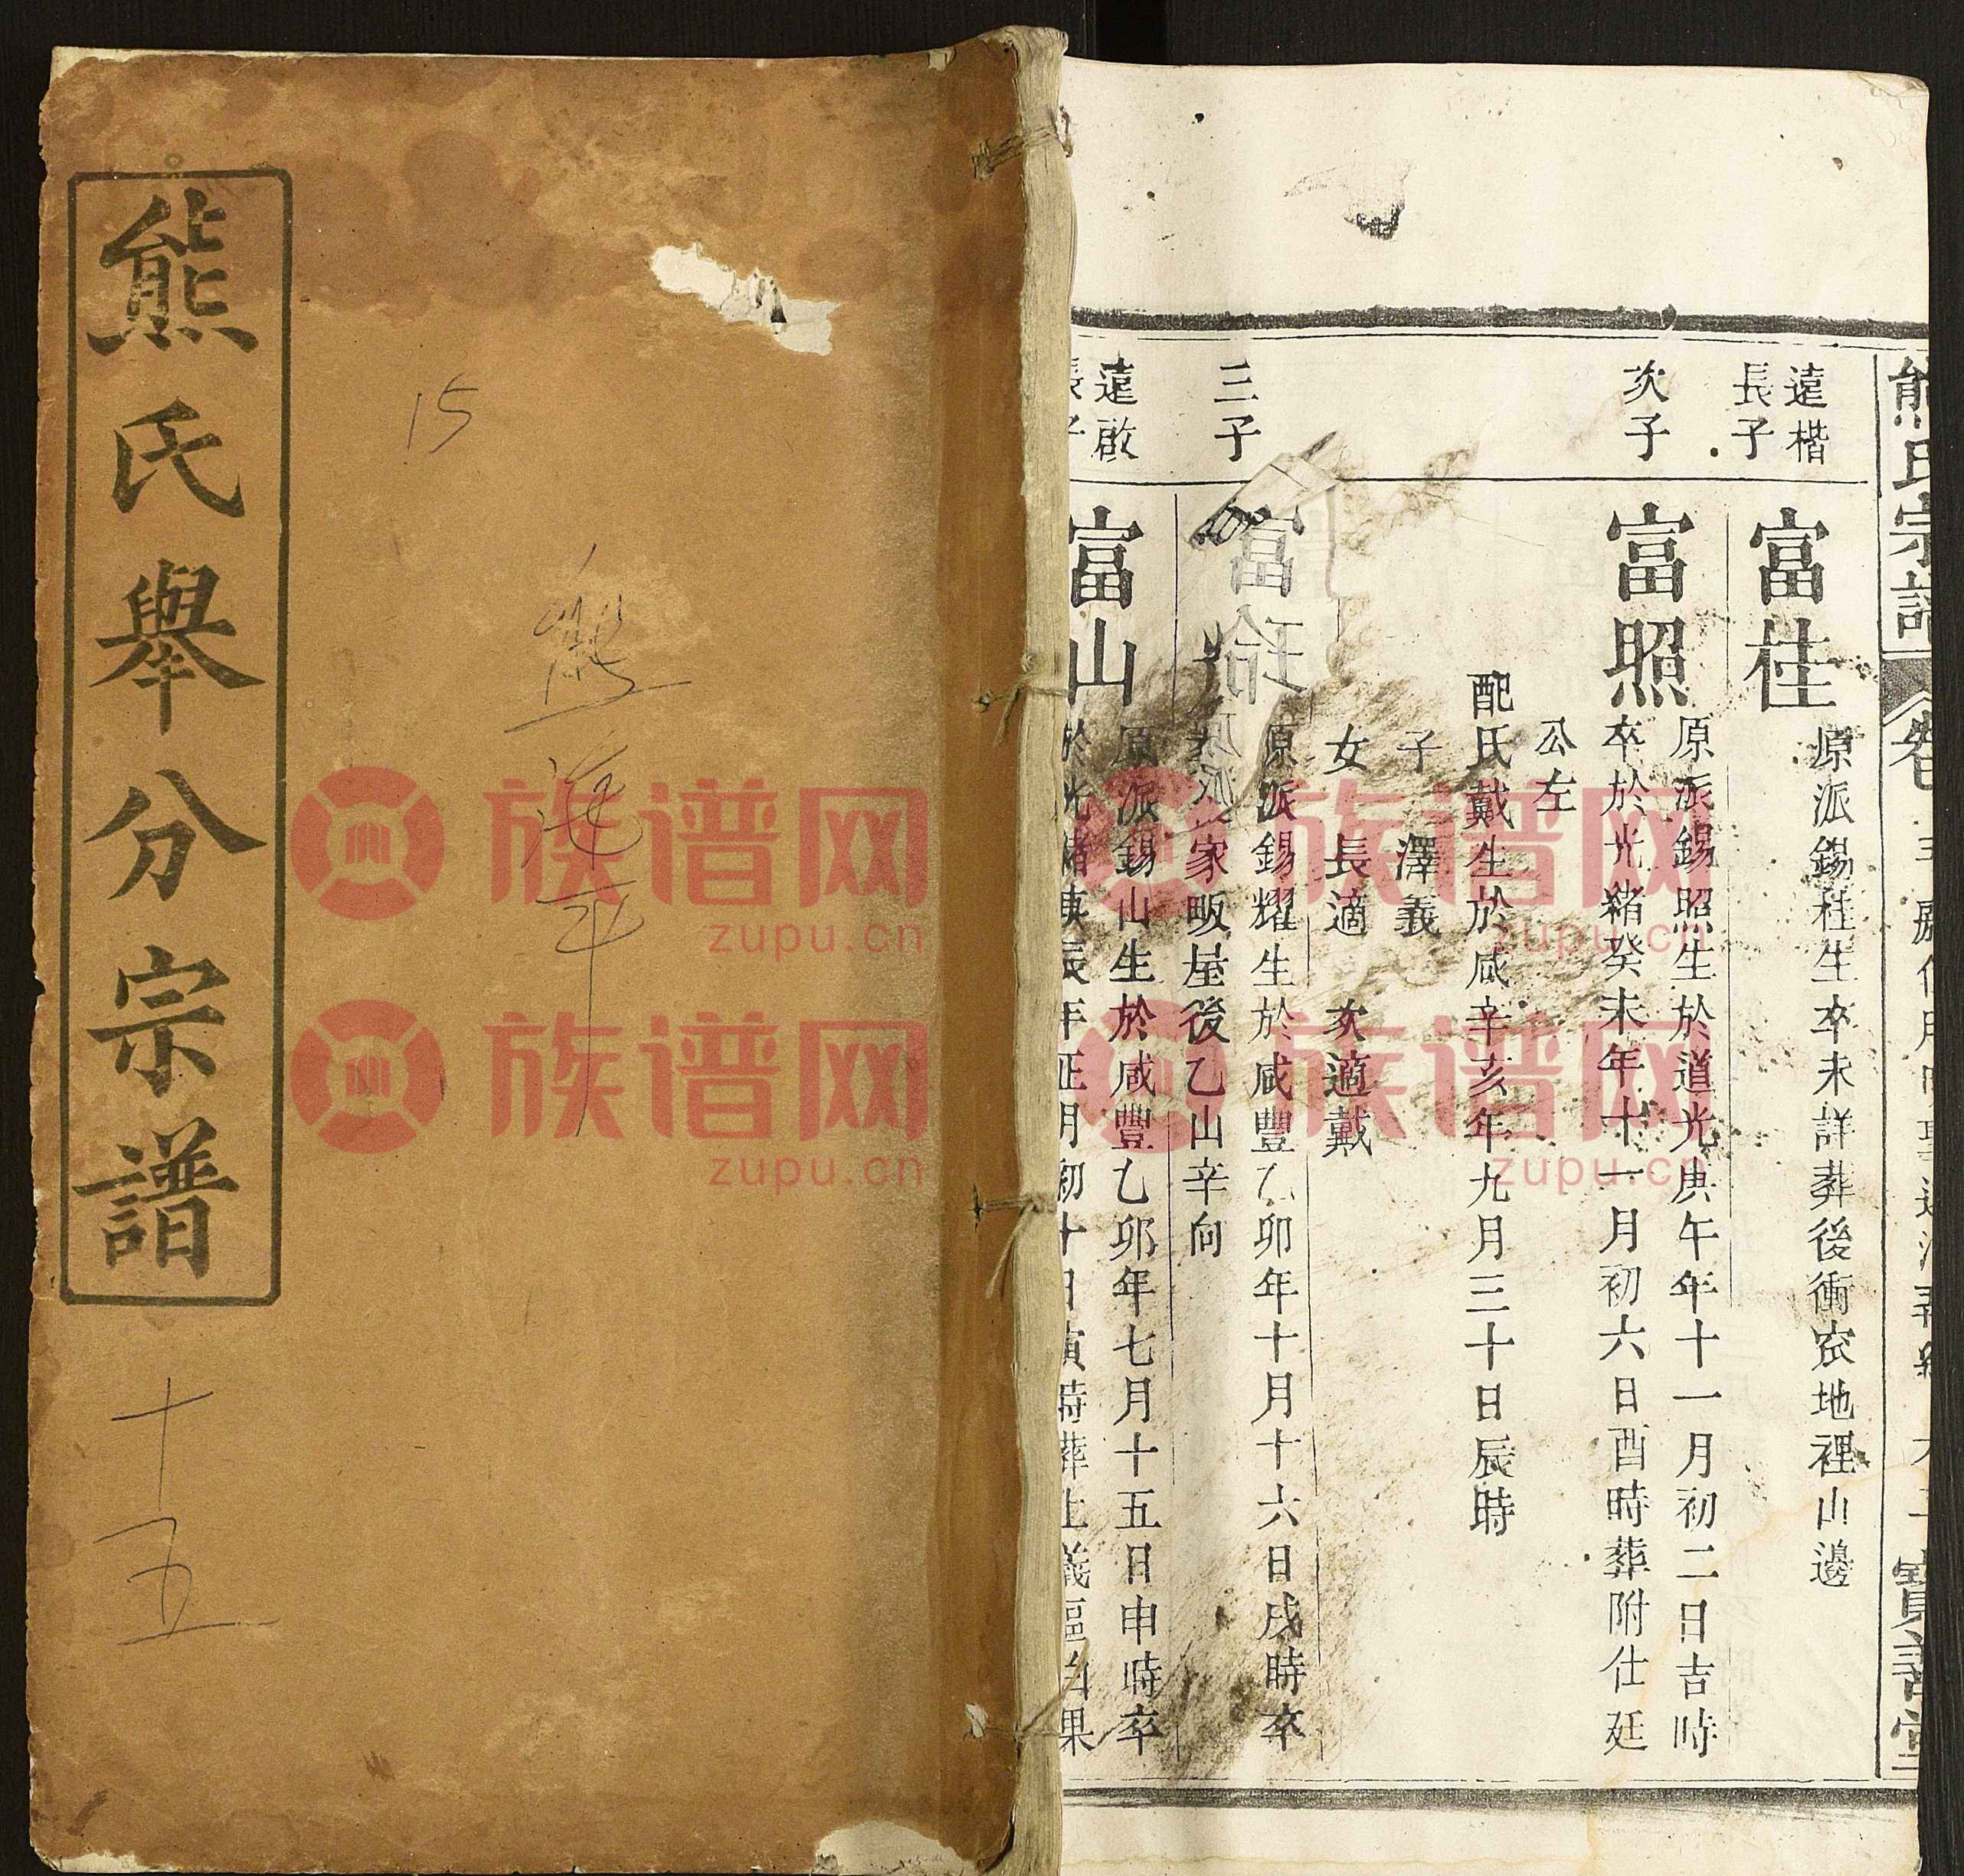 熊氏舉分宗譜
十五
15
熊
熊氏宗譜
卷
寶善堂
遠楷
長子
富桂
原派錫桂生卒未詳葬後衝窊地裡山邊
次子
富照
原派錫照生於道光庚午年十一月初二日吉時
卒於光緒癸未年十一月初六日酉時葬附仕廷
公左
配氏戴生於咸辛亥年九月三十日辰時
子 澤義
女 長適 次適戴
三子
富玲
原派錫耀生於咸豐乙卯年十月十六日戌時卒
家畈屋後乙山辛向
遠啟
長子
富山
原派錫山生於咸豐乙卯年七月十五日申時卒
於光緒庚辰年正月初十日寅時葬上義區白果
族谱网
zupu.cn
族谱网
zupu.cn
族谱网
zupu.cn
族谱网
zupu.cn